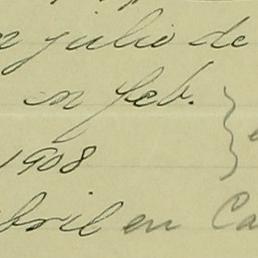 julio de
en feb.
1908
bril en Ca